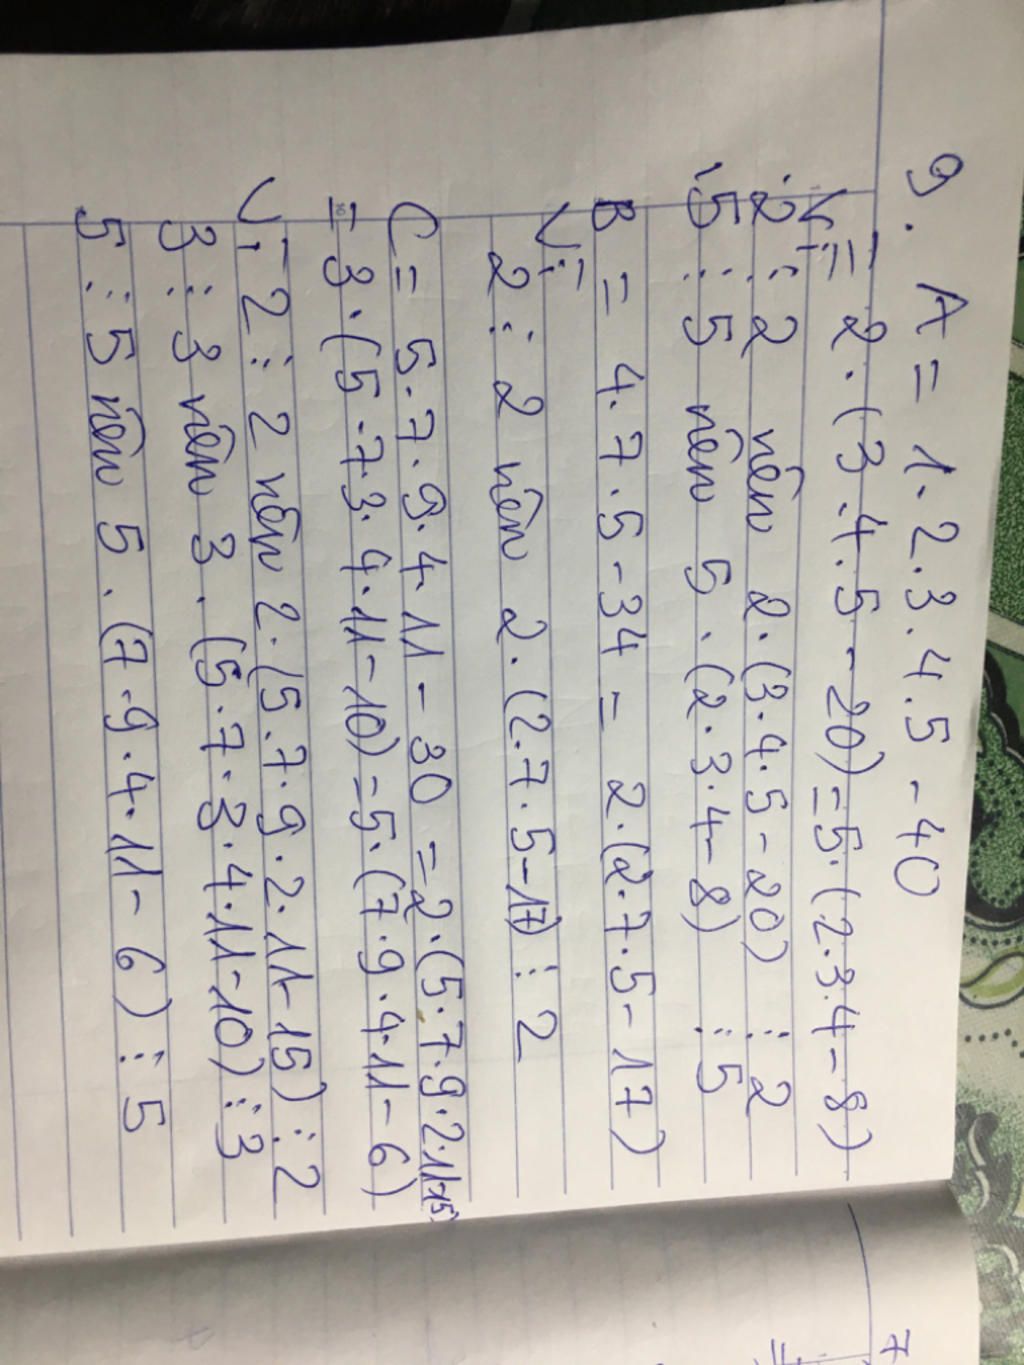 9. A = 1.2.3.4.5 - 40
= 2.(3.4.5 - 20) = 5.(2.3.4 - 8)
Vì
2 ⋮ 2 nên 2.(3.4.5 - 20) ⋮ 2
5 ⋮ 5 nên 5.(2.3.4 - 8) ⋮ 5
B = 4.7.5 - 34 = 2.(2.7.5 - 17)
Vì
2 ⋮ 2 nên 2.(2.7.5 - 17) ⋮ 2
C = 5.7.9.4.11 - 30 = 2.(5.7.9.2.11-15)
= 3.(5.7.3.4.11 - 10) = 5.(7.9.4.11 - 6)
Vì 2 ⋮ 2 nên 2.(5.7.9.2.11 - 15) ⋮ 2
3 ⋮ 3 nên 3.(5.7.3.4.11 - 10) ⋮ 3
5 ⋮ 5 nên 5.(7.9.4.11 - 6) ⋮ 5
7
=